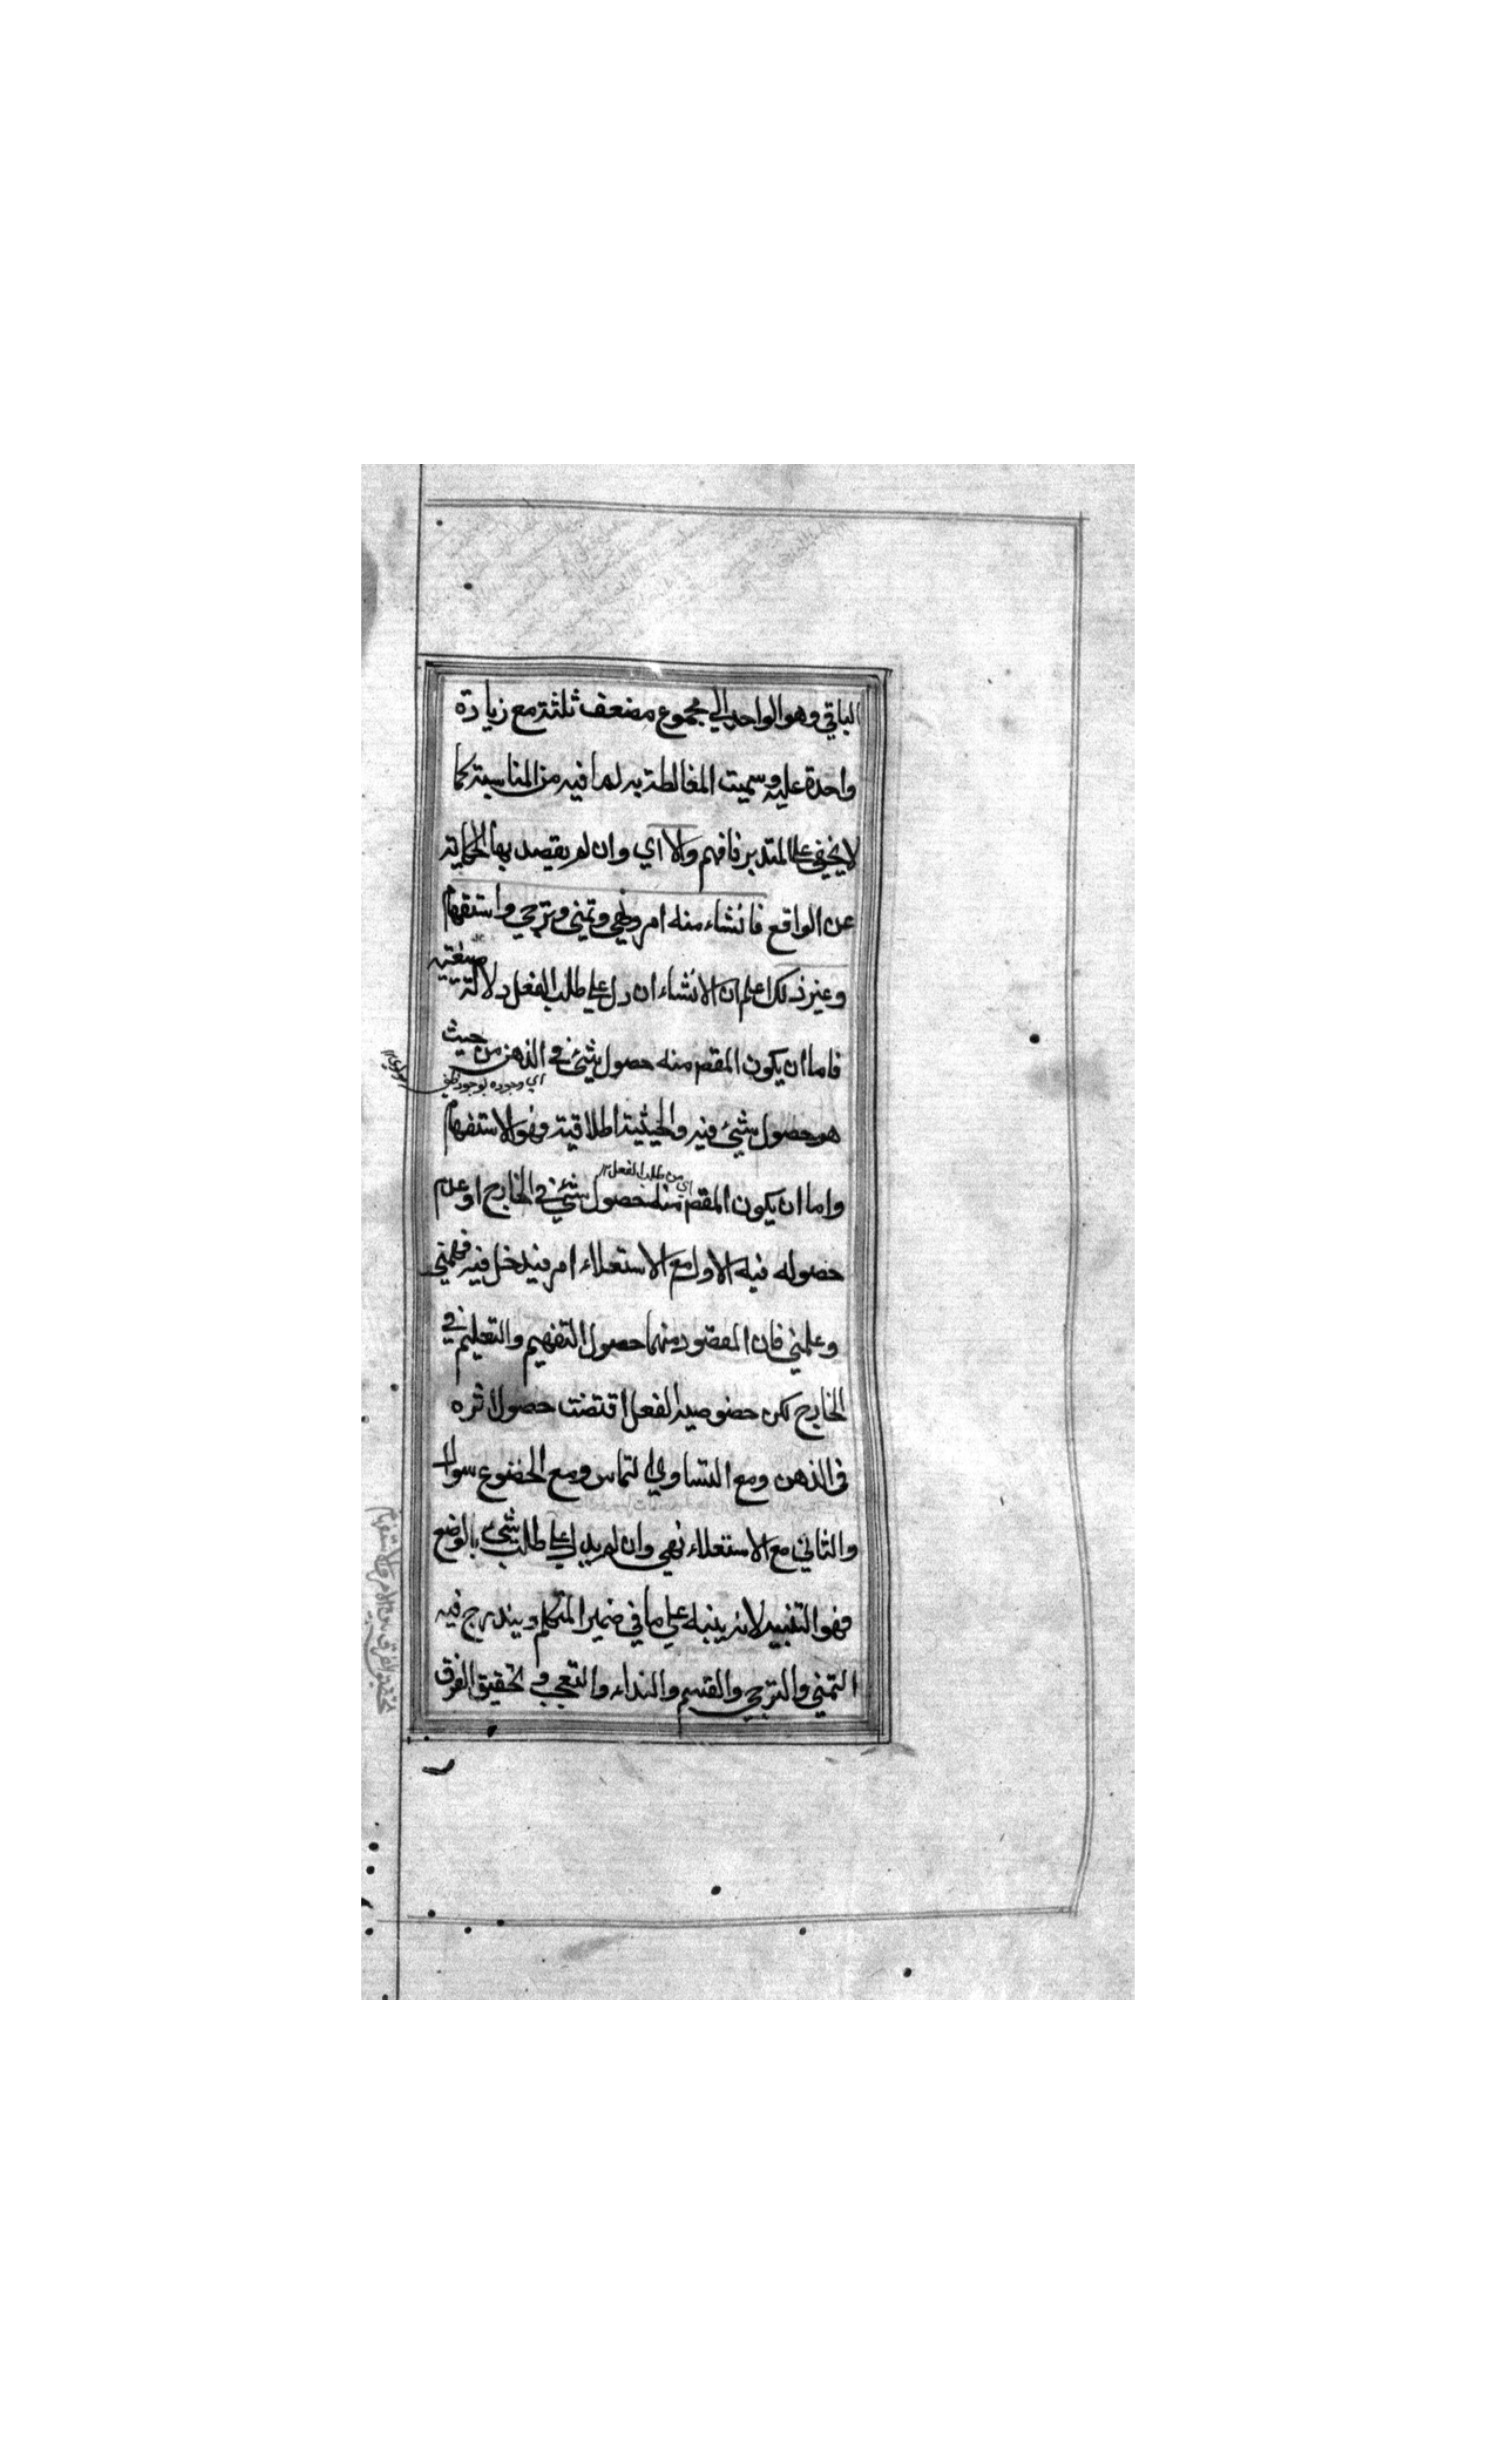 الباقي وهو الواحد الي مجموع مضعف ثلثة مع زيادة
واحدة عليه وسميت المغالطة به لما فيه من المناسبة كما
لا يخفي علي المتدبر فافهم والا اي وان لم يقصد بها الحكاية
عن الواقع فانشاء منه امر ونهي وتمني وترجي واستفهام
وغير ذلك اعلم ان الانشاء ان دل علي طلب الفعل دلالة صيغية
فاما ان يكون المقصم منه حصول شيئ في الذهن من حيث
اي وجوده بوجود ظلي
هو حصول شيئ فيه والحيثية اطلاقية فهو الاستفهام
اي من طلب الفعل ١٢
واما ان يكون المقصم منه حصول شيئ في الخارج او عدم
حصوله فيه الاول مع الاستعلاء امر فيدخل فيه فهمني
وعلمني فان المقصود منهما حصول التفهيم والتعليم في
الخارج لكن خصوصية الفعل اقتضت حصول اثره
في الذهن ومع التساوي التماس ومع الخضوع سوال
والثاني مع الاستعلاء نهي وان لم يدل علي طلب شيئ بالوضع
فهو التنبيه لانه ينبه علي ما في ضمير المتكلم ويندرج فيه
التمني والترجي والقسم والنداء والتعجب و تحقيق الفرق